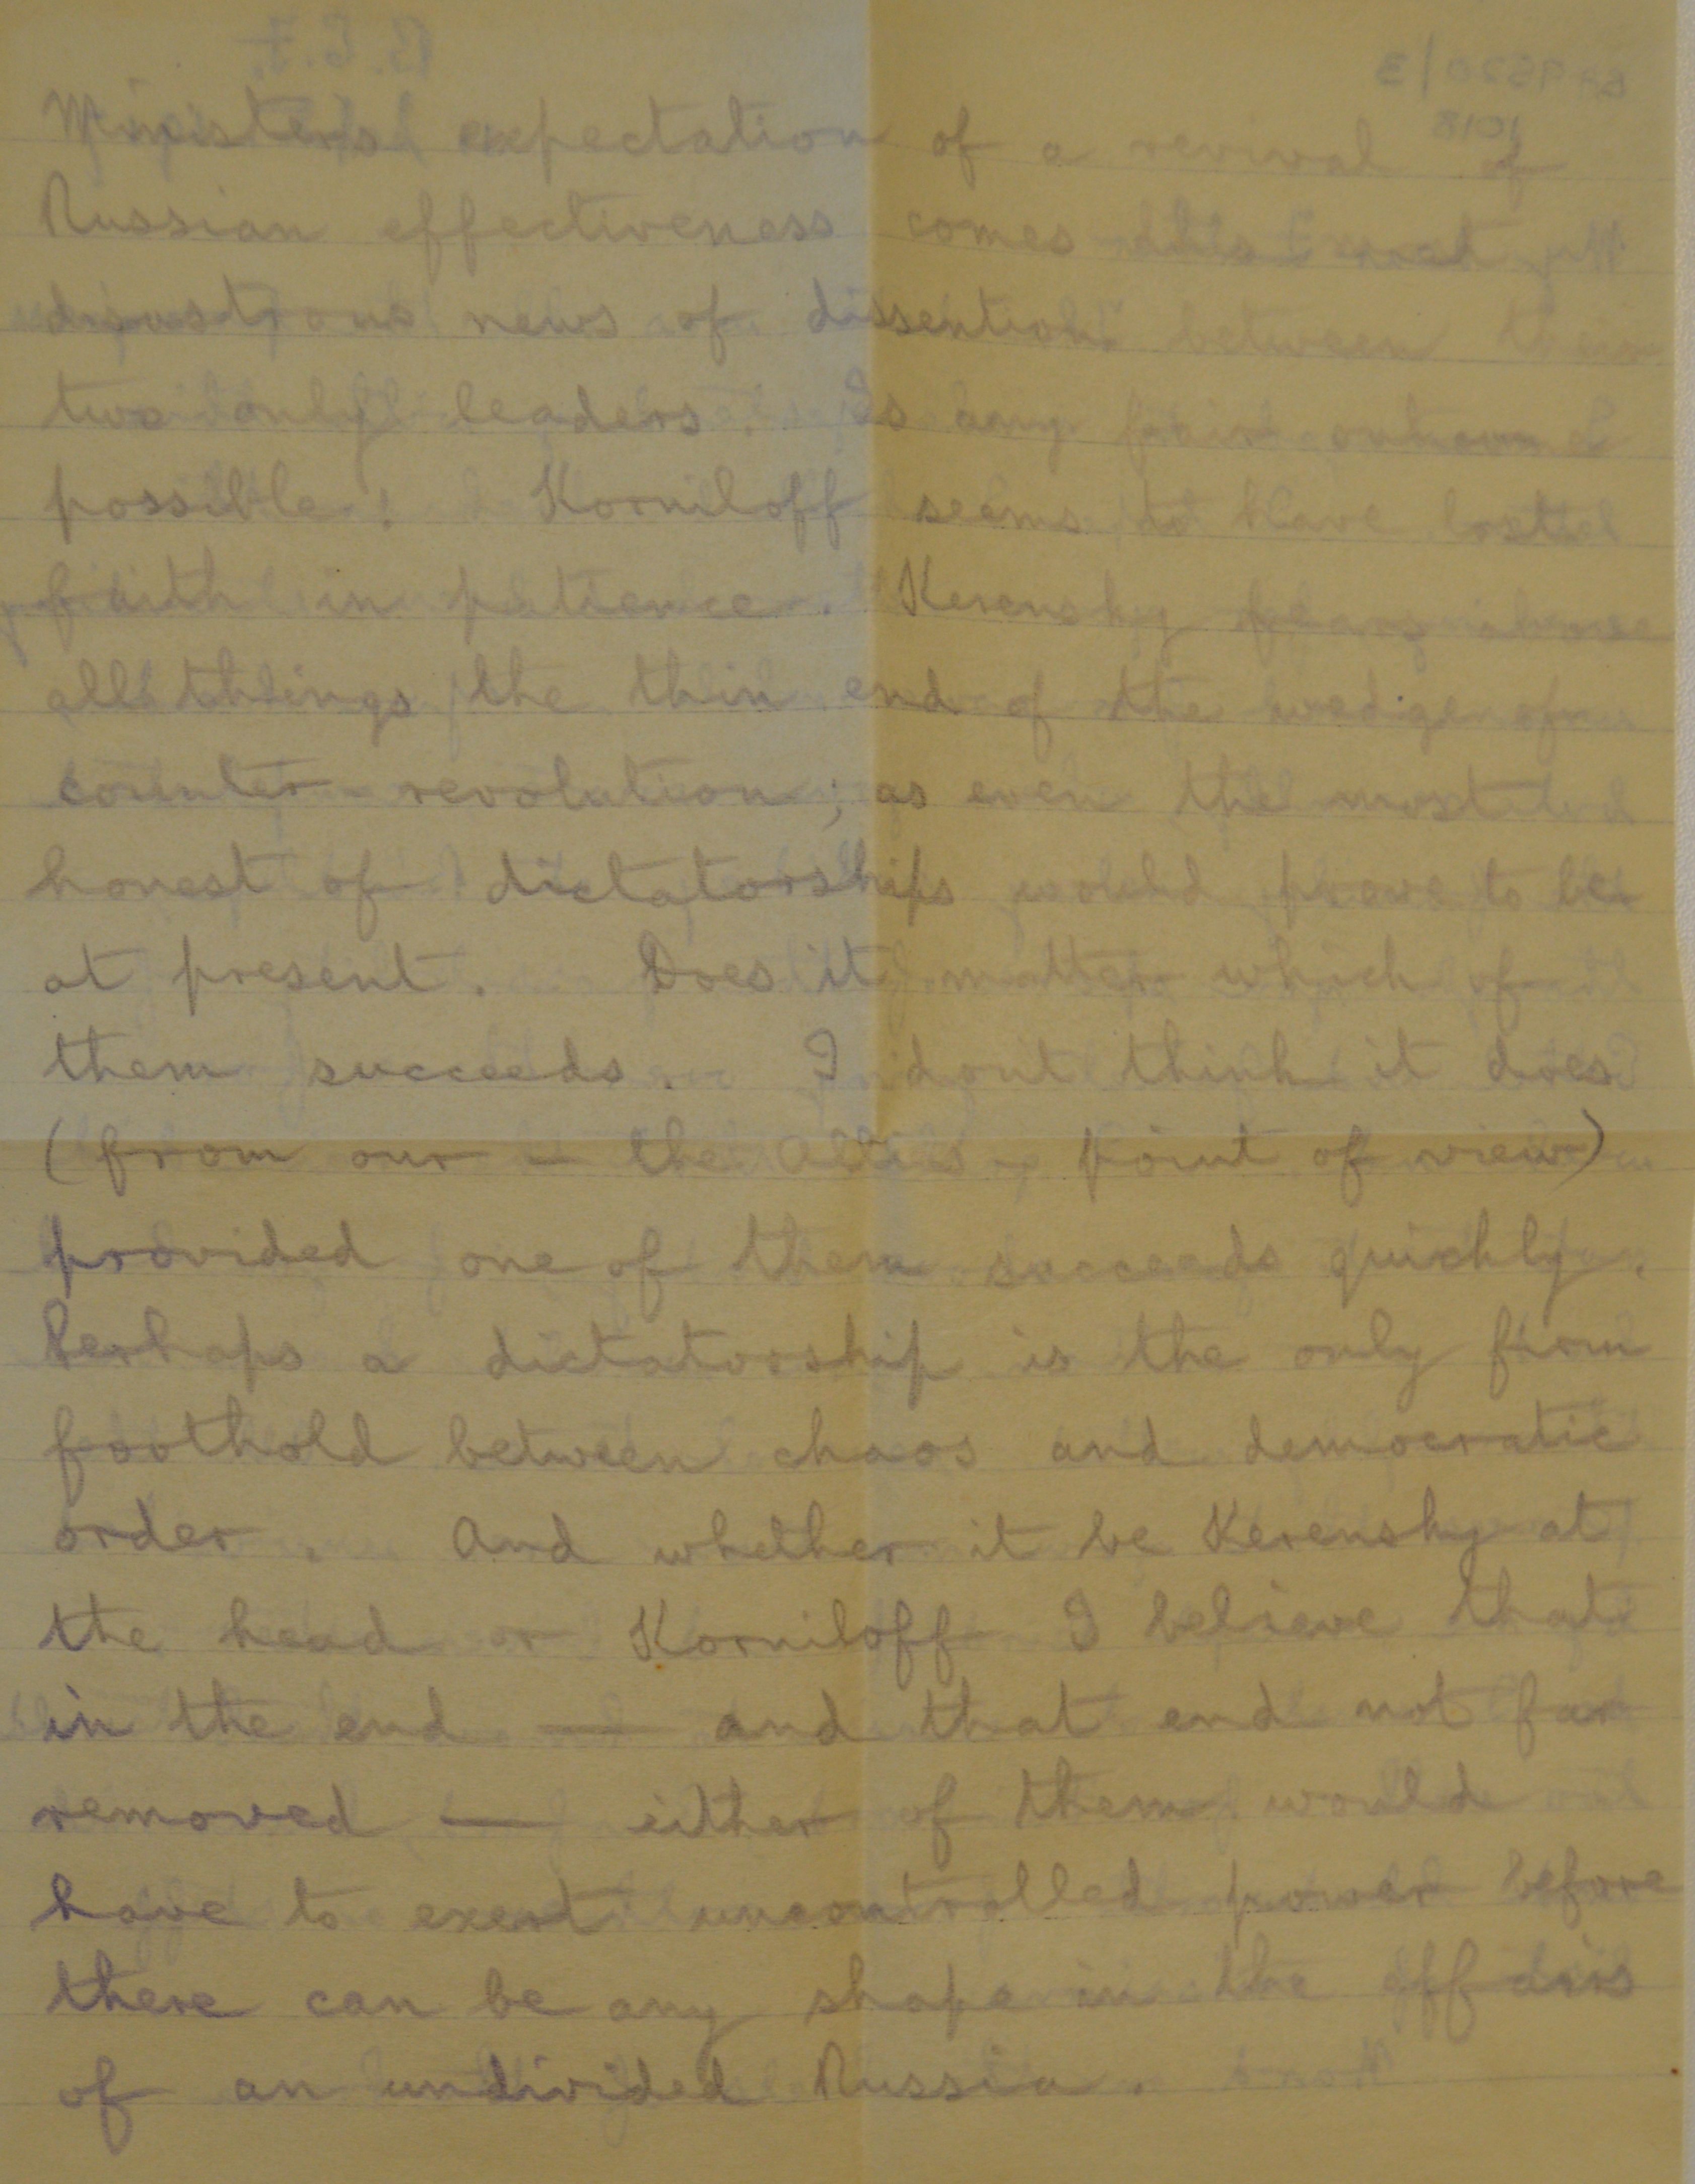 Minister's expectation of a revival of
Russian effectiveness comes this most
disastrous news of dissention between their
two only leaders. Is any fair outcome
possible! Korniloff seems to have lost
faith in patience. Kerensky fears above
all things the thin end of the wedge of
counter-revolution; as even the most
honest of dictatorships would prove to be
at present. Does it matter which of
them succeeds. I dont think it does
(from our - the Allies - point of view)
provided one of them succeeds quickly.
Perhaps a dictatorship is the only firm
foothold between chaos and democratic
order. And whether it be Kerensky at
the head or Korniloff I believe that
in the end — and that end not far
removed — either of them would
have to exert uncontrolled power before
there can be any shape in the affairs
of an undivided Russia.